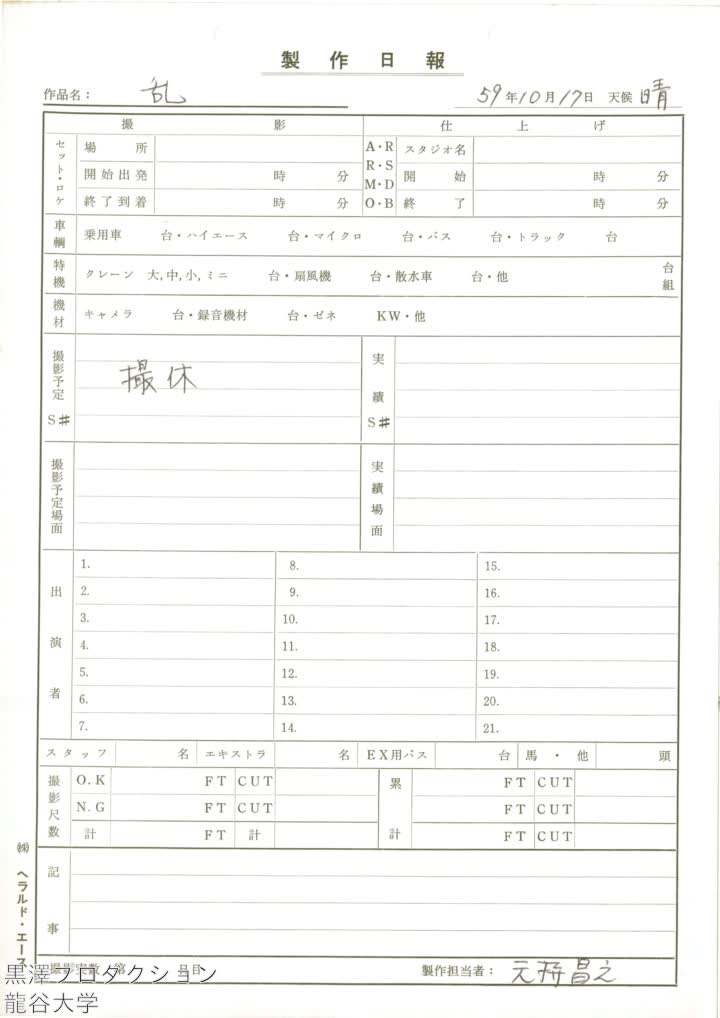 製作日報
作品名： 乱 59年10月17日 天候 晴
撮影 仕上げ
セット・ロケ 場所 A・R スタジオ名
開始出発 時 分 R・S M・D 開始 時 分
終了到着 時 分 O・B 終了 時 分
車輌 乗用車 台・ハイエース 台・マイクロ 台・バス 台・トラック 台
特機 クレーン 大,中,小,ミニ 台・扇風機 台・散水車 台・他 台組
機材 キャメラ 台・録音機材 台・ゼネ KW・他
撮影予定 S# 撮休 実績 S#
撮影予定場面 実績場面
出演者
1. 8. 15.
2. 9. 16.
3. 10. 17.
4. 11. 18.
5. 12. 19.
6. 13. 20.
7. 14. 21.
スタッフ 名 エキストラ 名 EX用バス 台 馬・他 頭
撮影尺数 O.K FT CUT 累計 FT CUT
N.G FT CUT FT CUT
計 FT 計 FT CUT
記事
撮影実数 第 日目 製作担当者：
㈱ヘラルド・エース
黒澤プロダクション
龍谷大学